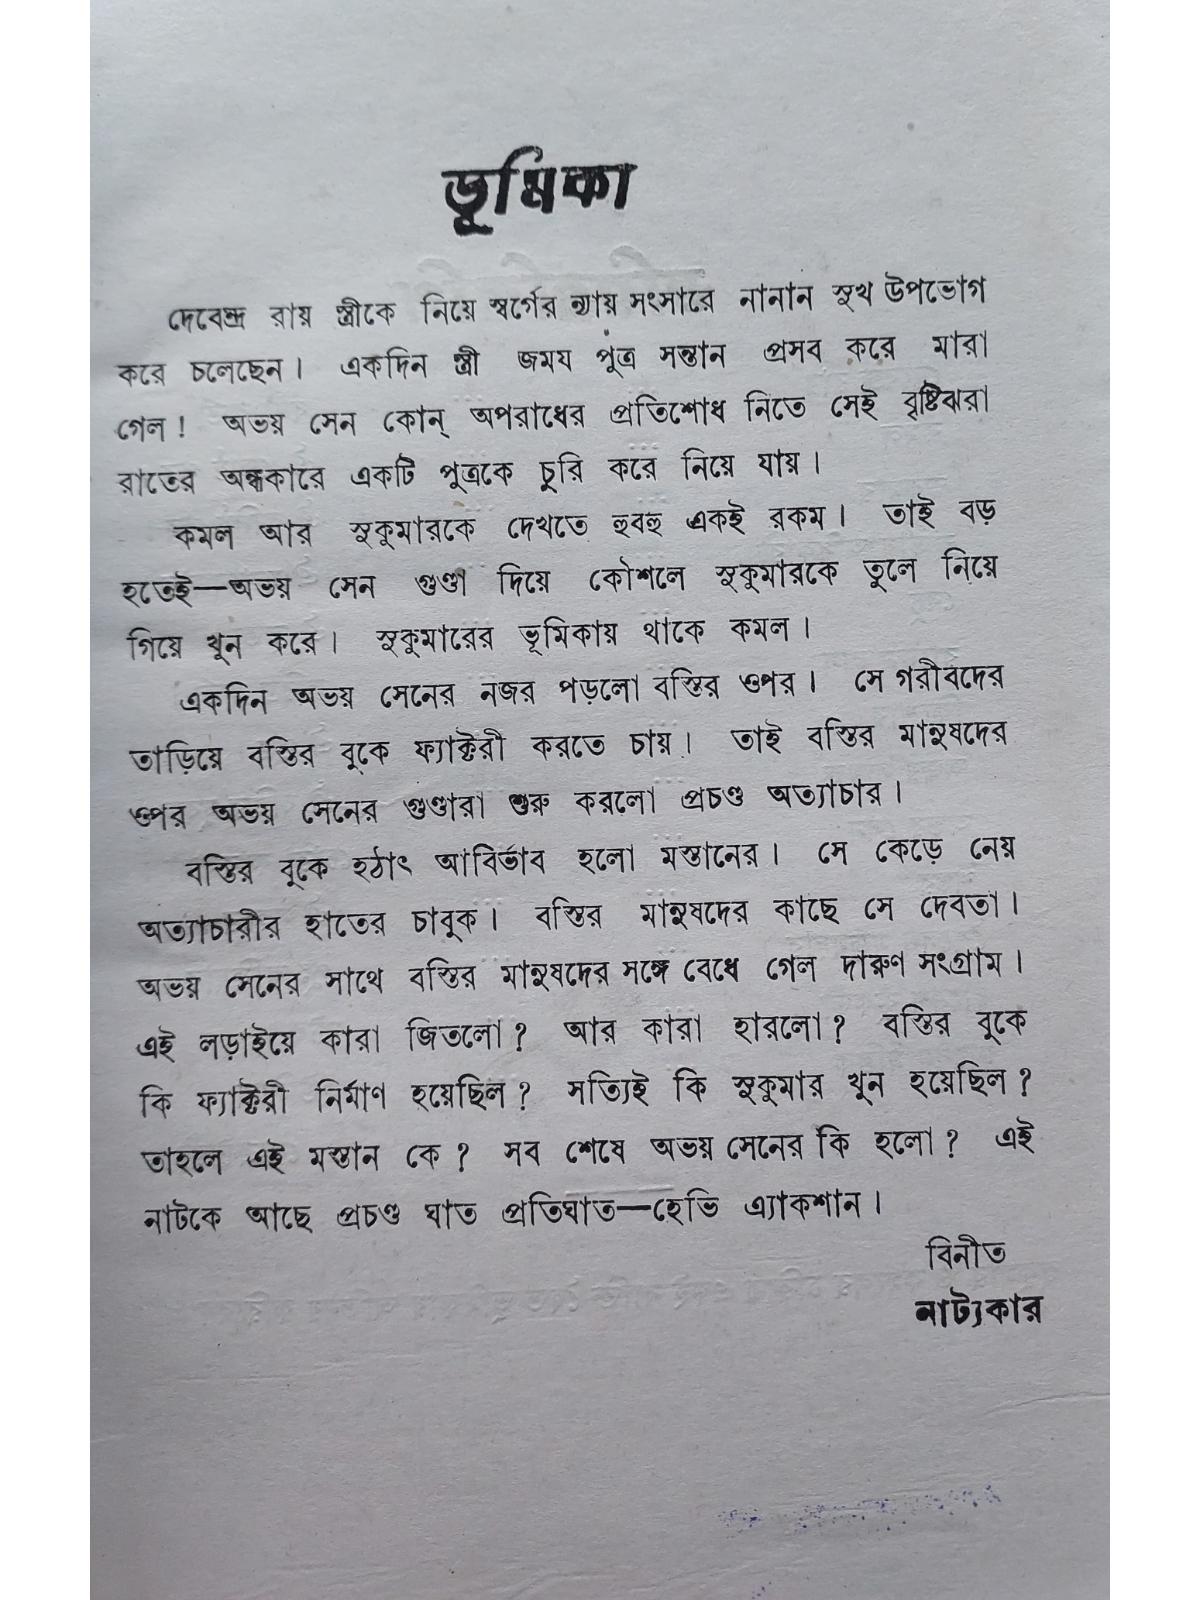 ভূমিকা
দেবেন্দ্র রায় স্ত্রীকে নিয়ে স্বর্গের ন্যায় সংসারে নানান সুখ উপভোগ
করে চলেছেন। একদিন স্ত্রী জময পুত্র সন্তান প্রসব করে মারা
গেল! অভয় সেন কোন্ অপরাধের প্রতিশোধ নিতে সেই বৃষ্টিঝরা
রাতের অন্ধকারে একটি পুত্রকে চুরি করে নিয়ে যায়।
কমল আর সুকুমারকে দেখতে হুবহু একই রকম। তাই বড়
হতেই—অভয় সেন গুণ্ডা দিয়ে কৌশলে সুকুমারকে তুলে নিয়ে
গিয়ে খুন করে। সুকুমারের ভূমিকায় থাকে কমল।
একদিন অভয় সেনের নজর পড়লো বস্তির ওপর। সে গরীবদের
তাড়িয়ে বস্তির বুকে ফ্যাক্টরী করতে চায়। তাই বস্তির মানুষদের
ওপর অভয় সেনের গুণ্ডারা শুরু করলো প্রচণ্ড অত্যাচার।
বস্তির বুকে হঠাৎ আবির্ভাব হলো মস্তানের। সে কেড়ে নেয়
অত্যাচারীর হাতের চাবুক। বস্তির মানুষদের কাছে সে দেবতা।
অভয় সেনের সাথে বস্তির মানুষদের সঙ্গে বেধে গেল দারুণ সংগ্রাম।
এই লড়াইয়ে কারা জিতলো? আর কারা হারলো? বস্তির বুকে
কি ফ্যাক্টরী নির্মাণ হয়েছিল? সত্যিই কি সুকুমার খুন হয়েছিল?
তাহলে এই মস্তান কে? সব শেষে অভয় সেনের কি হলো? এই
নাটকে আছে প্রচণ্ড ঘাত প্রতিঘাত—হেভি এ্যাকশান।
বিনীত
নাট্যকার